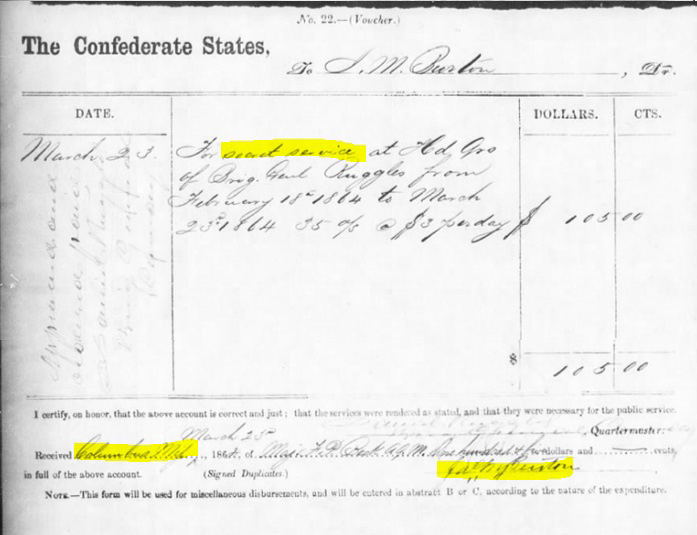 No. 22.—(Voucher.)
The Confederate States,
To J. M. Burton, Dr.
DATE. DOLLARS. CTS.
March 23. For secret service at Hd Qrs
of Brig. Genl Ruggles from
February 18th 1864 to March
23d 1864 35 d/s @ $3 per day $ 105 00
Approved and
ordered paid
$ 105 00
I certify, on honor, that the above account is correct and just; that the services were rendered as stated, and that they were necessary for the public service.
Quartermaster.
March 25th
Received Columbus, Mi, 1864, of Major A.Q.M. One hundred & five dollars and cents,
in full of the above account. (Signed Duplicates.) Burton
NOTE.—This form will be used for miscellaneous disbursements, and will be entered in abstract B or C, according to the nature of the expenditure.